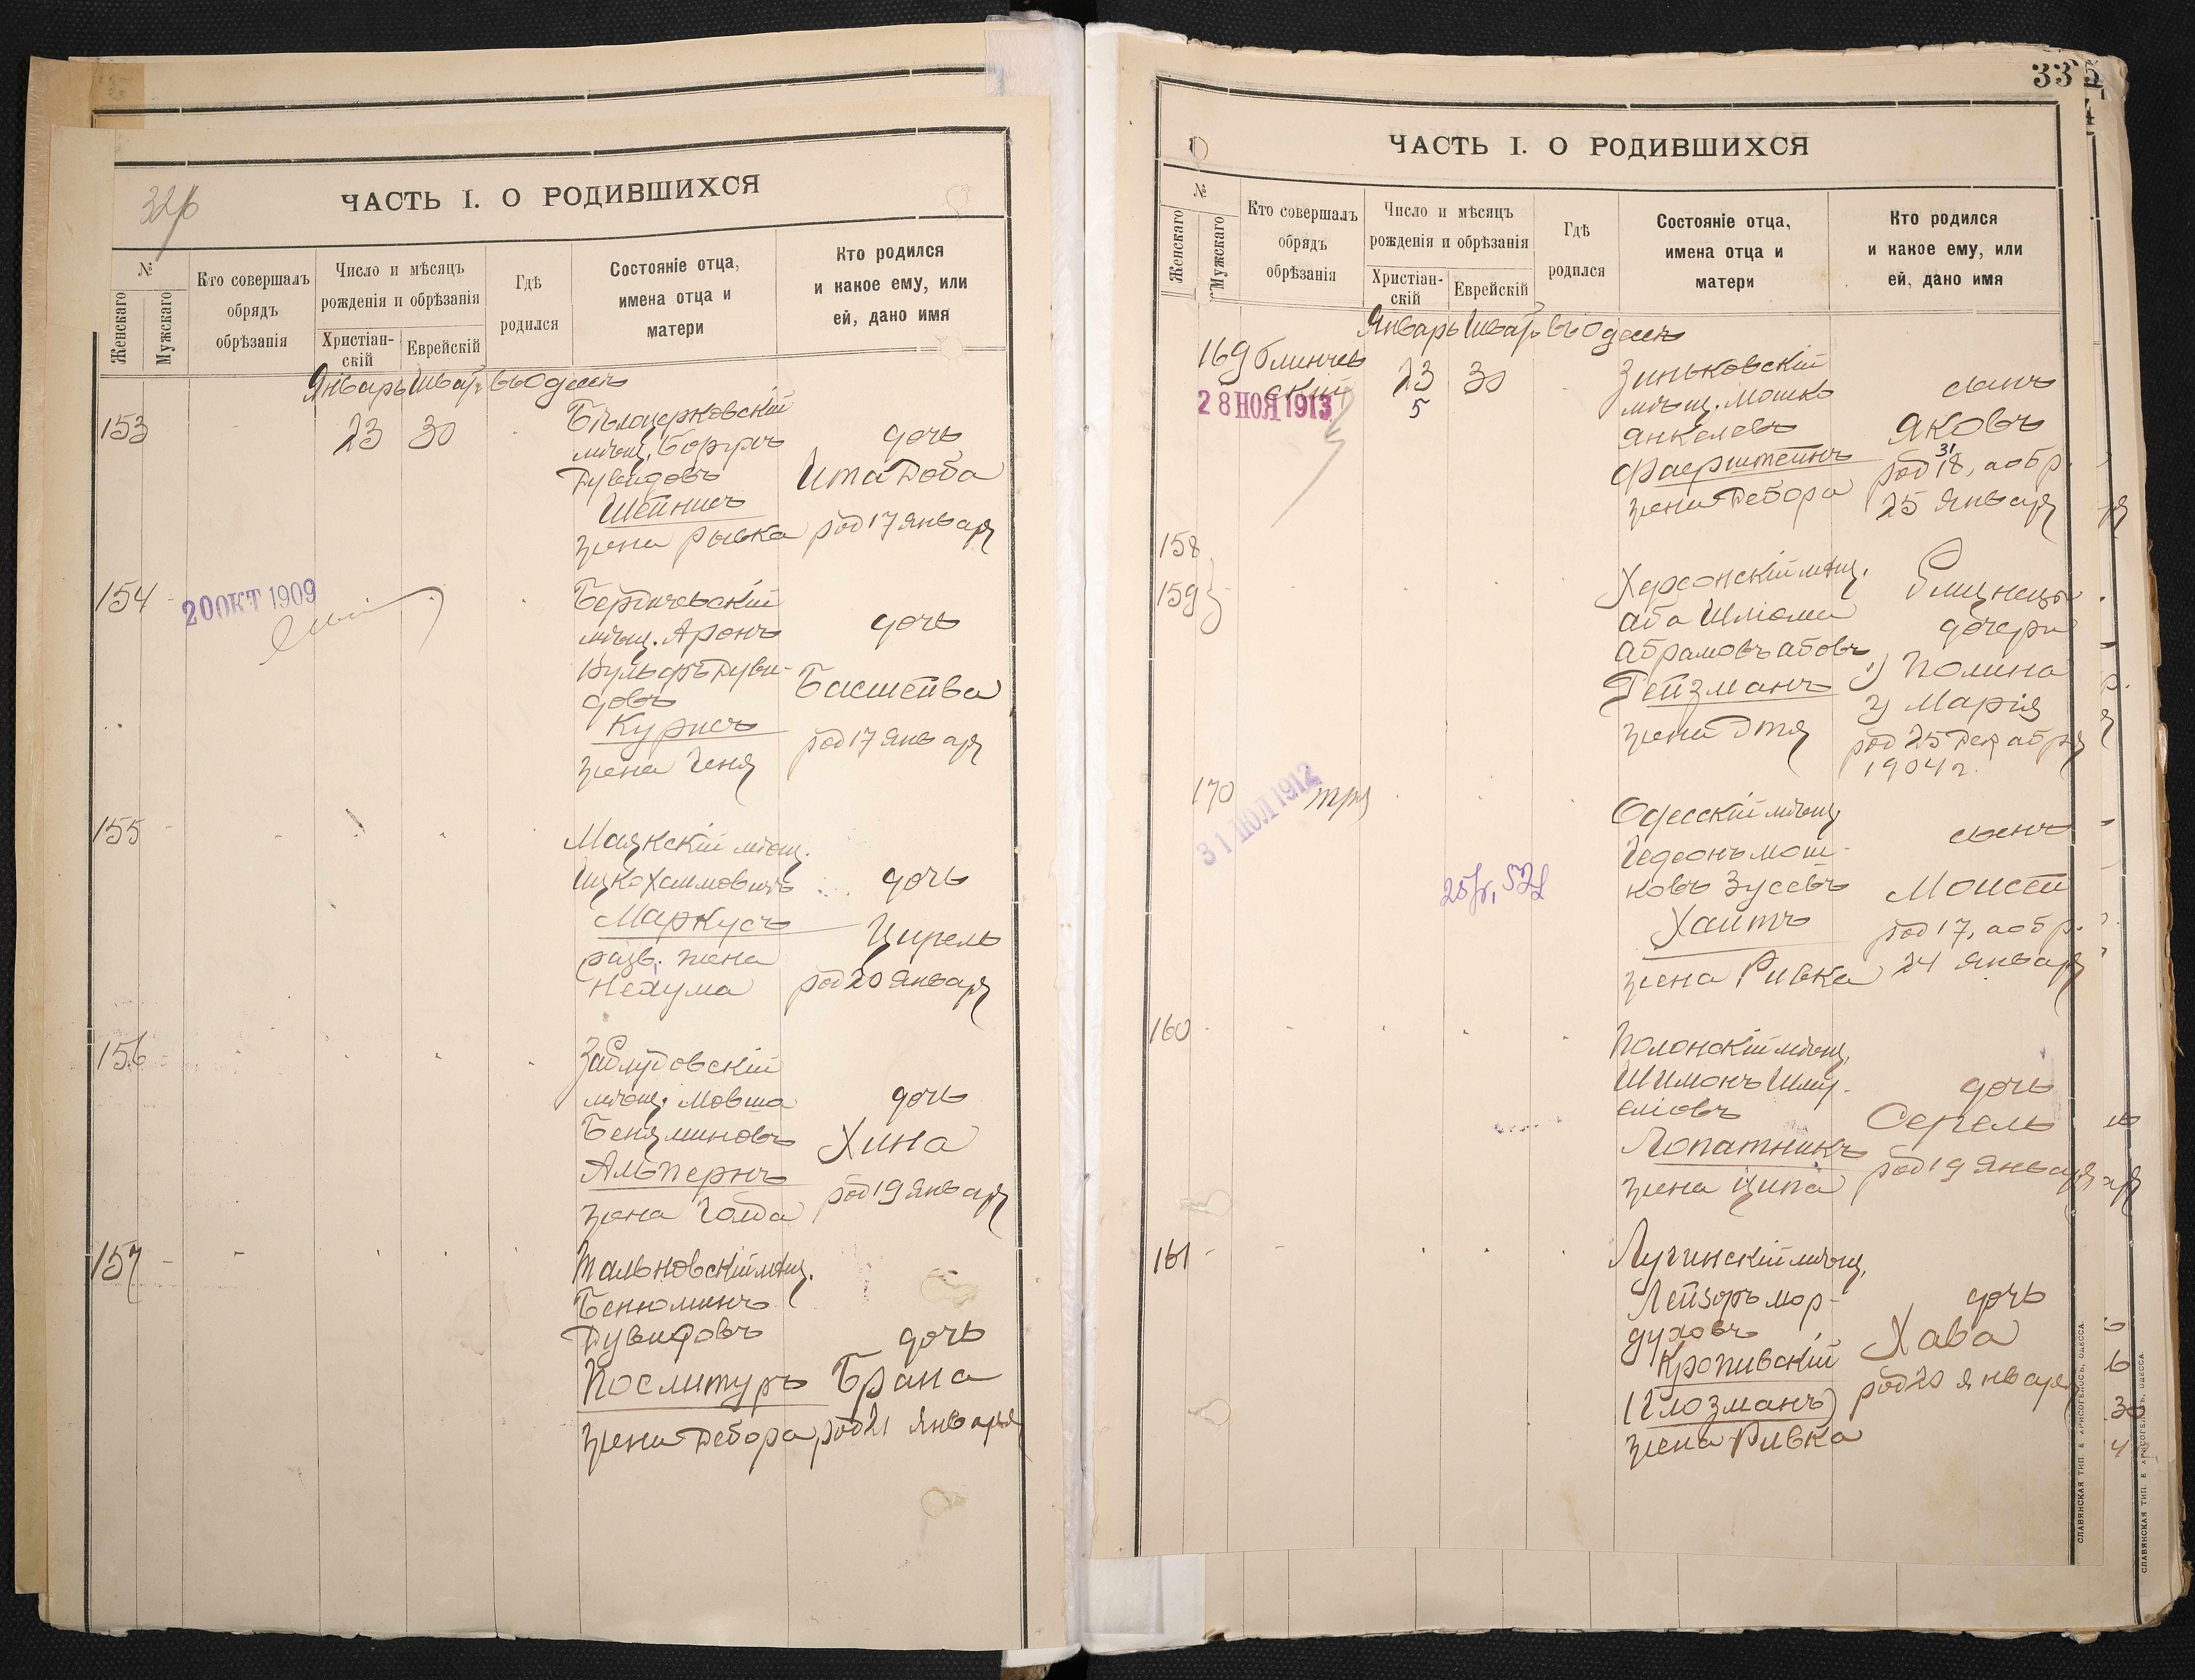 32/6
ЧАСТЬ I. О РОДИВШИХСЯ
№
Женскаго
Мужскаго
Кто совершалъ
обрядъ
обрѣзанія
Число и мѣсяцъ
рожденія и обрѣзанія
Христіан-
скій
Еврейскій
Гдѣ
родился
Состояніе отца,
имена отца и
матери
Кто родился
и какое ему, или
ей, дано имя
Январь Шватъ въ Одессѣ
153
23 30
Бѣлоцерковскій
мѣщ. Борухъ
Дувидовъ
Шейнисъ
жена Рывка
дочь
Ита Доба
род 17 Января
154
20 ОКТ 1909
Бердичевскій
мѣщ. Аронъ
Вульфъ Дуви-
довъ
Курисъ
жена Геня
дочь
Басшейва
род 17 Января
155
Маякскій мѣщ.
Ицко Хаимовичъ
Маркусъ
разв. жена
Нехума
дочь
Цирель
род 20 Января
156
Заблудовскій
мѣщ. Мовша
Беняминовъ
Альпернъ
жена Голда
дочь
Хина
род 19 Января
157
Тальновскій мѣщ.
Бенюминъ
Дувидовъ
Послитуръ
жена Дебора
дочь
Брана
род 21 Января
335
ЧАСТЬ I. О РОДИВШИХСЯ
№
Женскаго
Мужскаго
Кто совершалъ
обрядъ
обрѣзанія
Число и мѣсяцъ
рожденія и обрѣзанія
Христіан-
скій
Еврейскій
Гдѣ
родился
Состояніе отца,
имена отца и
матери
Кто родился
и какое ему, или
ей, дано имя
Январь Шватъ въ Одессѣ
169 Блинчев
скій
28 НОЯ 1913
23 30
5
Зиньковскій
мѣщ. Мошко
Янкелевъ
Фаерштейнъ
жена Дебора
сынъ
Яковъ
31
род 18, а обр.
25 Января
158
159
Херсонскій мѣщ.
Аба Шліома
Абрамовъ Абовъ
Гейзманъ
жена Этя
Близнецы
дочери
1) Полина
2) Марія
род 25 Декабря
1904 г.
170
31 ИЮЛ 1912
25/V, 521
Одесскій мѣщ.
Гедеонъ Мош-
ковъ Зусевъ
Хаитъ
жена Ривка
сынъ
Моисей
род 17, а обр.
24 Января
160
Полонскій мѣщ.
Шимонъ Шму-
еліовъ
Лопатникъ
жена Ципа
дочь
Серель
род 19 Января
161
Лугинскій мѣщ.
Лейзоръ Мор-
духовъ
Кропивскій
(Глозманъ)
жена Ривка
дочь
Хава
род 20 Января
СЛАВЯНСКАЯ ТИП. Е. ХРИСОГЕЛОСЪ, ОДЕССА.
СЛАВЯНСКАЯ ТИП. Е. ХРИСОГЕЛОСЪ, ОДЕССА.